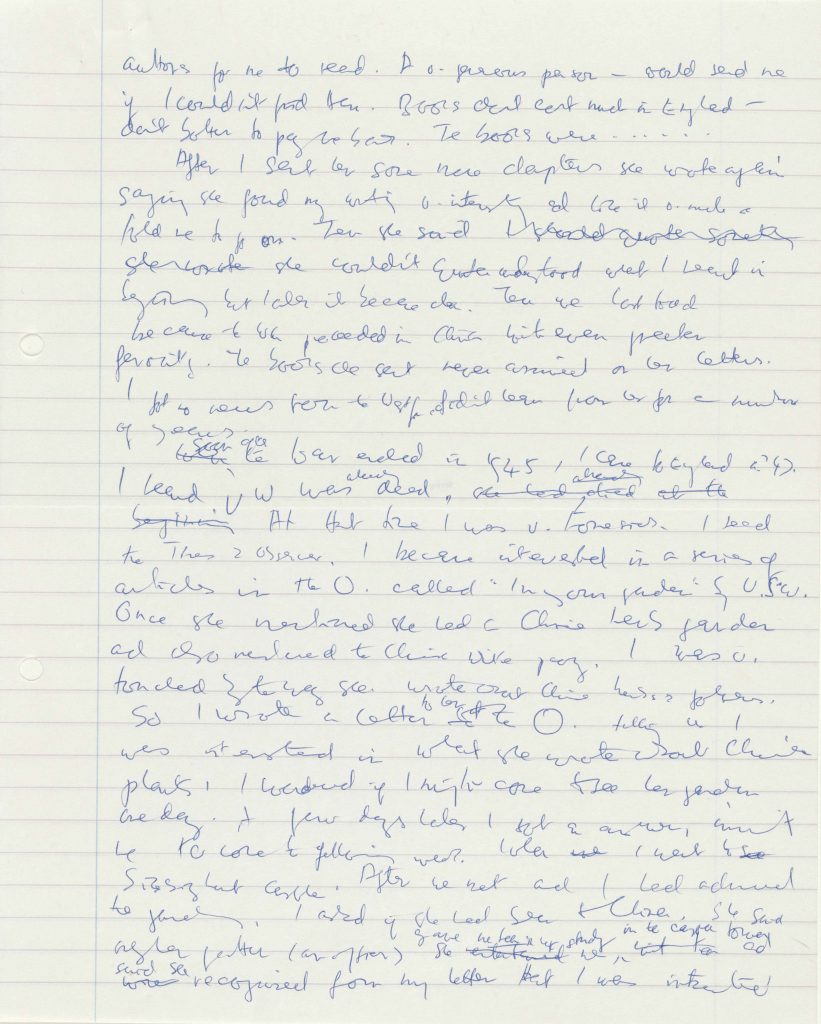 authors for me to read. A v. generous person – would send me
if I couldn't find them. Books don't cost much in England –
don't bother to pay me back. The books were . . . . . .
After I sent her some more chapters she wrote again
saying she found my writing v. interesting and like it v. much &
told me to go on. Then she said I should quote
she couldn't quite understood what I meant in
beginning but later it became clear. Then we lost touch
because the war proceeded in China with even greater
ferocity. The books she sent never arrived or her letters.
I got no news from the West for, didn't hear from her for a number
of years.
Soon after the war ended in 1945, I came to England in 47.
I heard V W was already dead, she had already died at the
beginning At that time I was v. I read
the Times & Observer. I became interested in a series of
articles in the O. called "In your garden" by V. S-W.
Once she mentioned she had a Chinese herb garden
and also mentioned the Chinese I was v.
touched by the way she wrote about Chinese herbs & flowers.
So I wrote a letter to her at the O. telling her I
was interested in what she wrote about Chinese
plants, I wondered if I might come to see her garden
one day. A few days later I got an answer, invit
me to come the following week. When I went to
Sissinghurst Castle. After we met and I had admired
the garden, I asked if she had been to China. She said
father gave me tea in her study in the castle tower
she entertained me and
said she recognized from my letter that I was interested